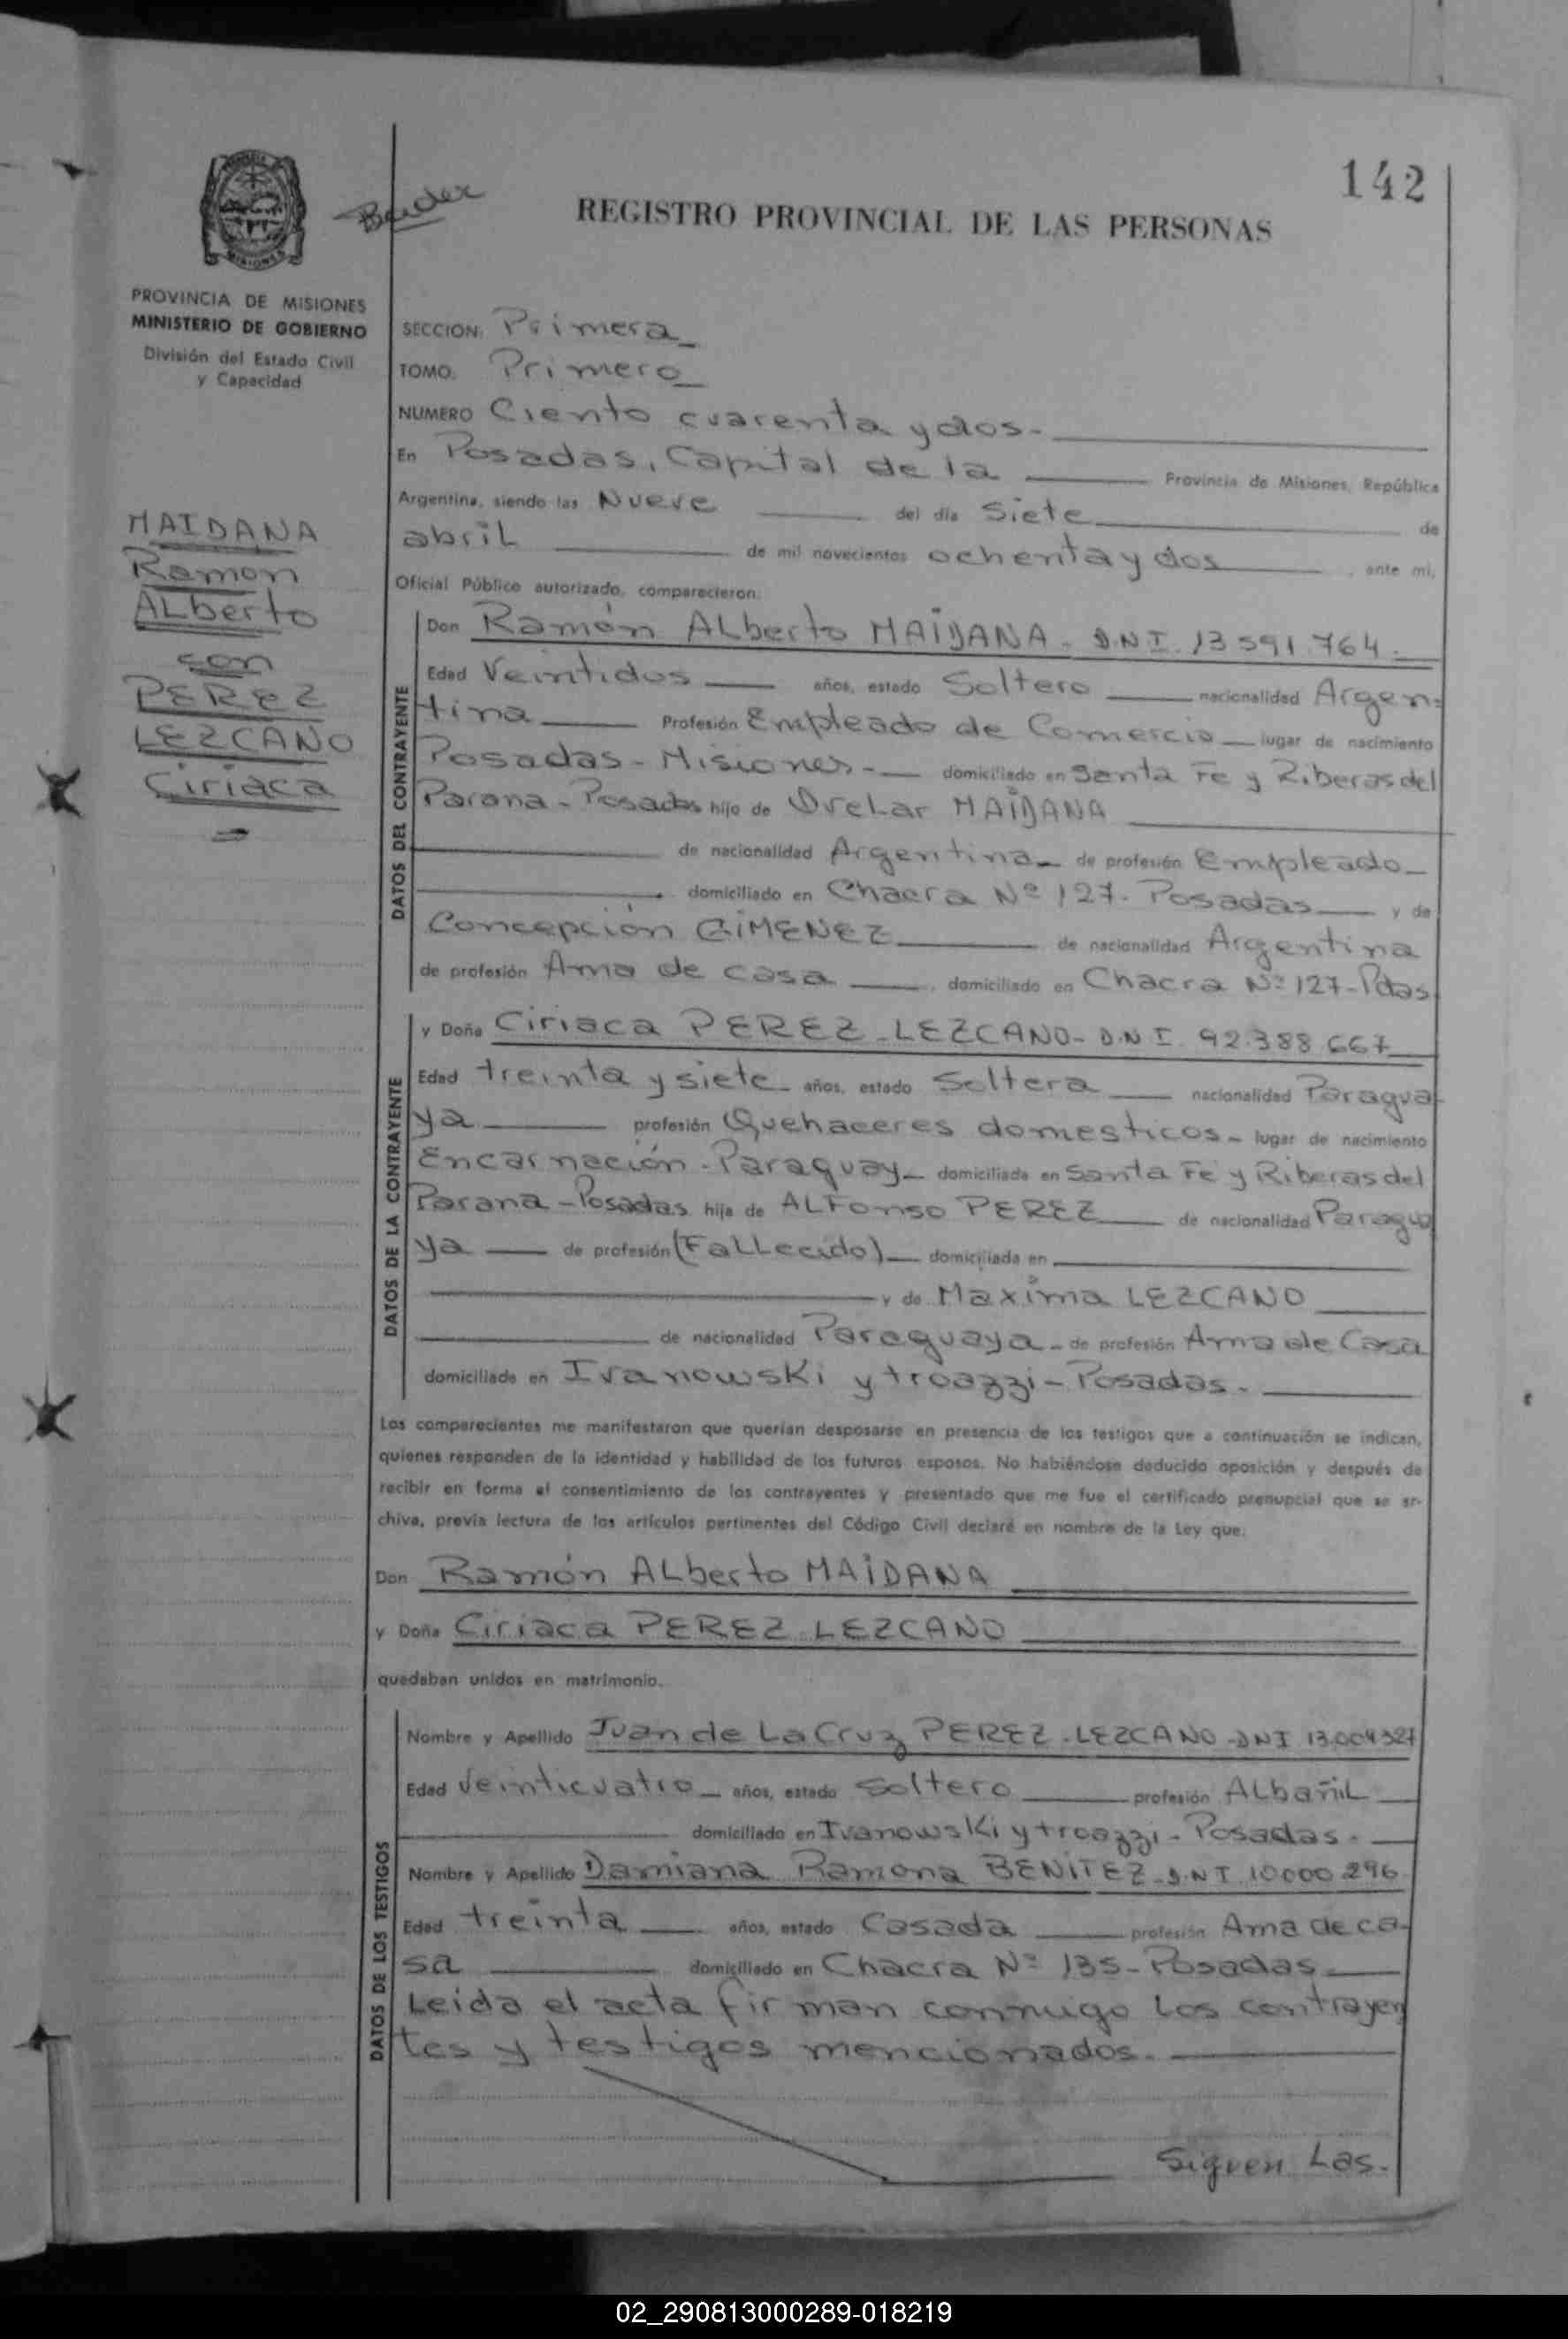 142
Bender
REGISTRO PROVINCIAL DE LAS PERSONAS
PROVINCIA DE MISIONES
MINISTERIO DE GOBIERNO
División del Estado Civil
y Capacidad
MAIDANA
Ramon
ALberto
con
PEREZ
LEZCANO
Ciriaca
SECCION: Primera_
TOMO: Primero_
NUMERO Ciento cuarenta y dos.-
En Posadas, Capital de la Provincia de Misiones, República
Argentina, siendo las Nueve del día Siete de
abril de mil novecientos ochenta y dos, ante mí,
Oficial Público autorizado, comparecieron:
DATOS DEL CONTRAYENTE
Don Ramón ALberto MAIDANA - D.N.I. 13.591.764.-
Edad Veintidos años, estado Soltero nacionalidad Argen=
tina Profesión Empleado de Comercio lugar de nacimiento
Posadas - Misiones.- domiciliado en Santa Fe y Riberas del
Parana - Posadas hijo de MAIDANA
de nacionalidad Argentina de profesión Empleado
domiciliado en Chacra Nº 127. Posadas y de
Concepción GIMENEZ de nacionalidad Argentina
de profesión Ama de casa, domiciliada en Chacra Nº 127-Pdas
DATOS DE LA CONTRAYENTE
y Doña Ciriaca PEREZ - LEZCANO - D.N.I. 92.388.667
Edad treinta y siete años, estado Soltera nacionalidad Paragua-
ya profesión Quehaceres domesticos lugar de nacimiento
Encarnación - Paraguay domiciliada en Santa Fe y Riberas del
Parana - Posadas hija de ALFonso PEREZ de nacionalidad Paragua
ya de profesión (FaLLecido) domiciliada en
y de Maxima LEZCANO
de nacionalidad Paraguaya de profesión Ama de Casa
domiciliada en Ivanowski y troazzi - Posadas.-
Los comparecientes me manifestaron que querían desposarse en presencia de los testigos que a continuación se indican,
quienes responden de la identidad y habilidad de los futuros esposos. No habiéndose deducido oposición y después de
recibir en forma el consentimiento de los contrayentes y presentado que me fue el certificado prenupcial que se ar-
chiva, previa lectura de los artículos pertinentes del Código Civil declaré en nombre de la Ley que:
Don Ramón ALberto MAIDANA
y Doña Ciriaca PEREZ LEZCANO
quedaban unidos en matrimonio.
DATOS DE LOS TESTIGOS
Nombre y Apellido Juan de La Cruz PEREZ - LEZCANO - DNI 13.004.327
Edad Veinticuatro años, estado Soltero profesión ALbañiL
domiciliado en Ivanowski y troazzi - Posadas.
Nombre y Apellido Damiana Ramona BENITEZ - D.N.I. 10.000.296
Edad treinta años, estado Casada profesión Ama de ca-
sa domiciliado en Chacra Nº 135 - Posadas
Leida el acta firman conmigo los contrayen
tes y testigos mencionados.
Siguen Las.-
02_290813000289-018219